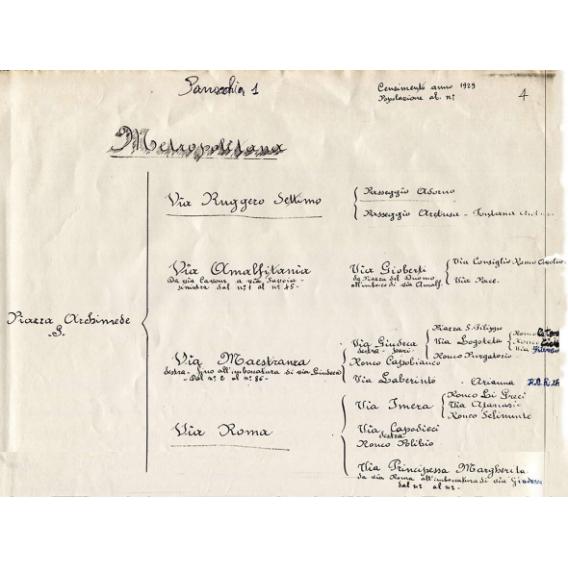 Parrocchia 1
Censimento anno 1929
Popolazione ab. n°
4
Metropolitana
Via Ruggero Settimo
Passeggio Adorno
Passeggio Aretusa - Fontana
Via Amalfitania
Da via Cavour a via Savoia
sinistra dal n° 1 al n° 45-
Via Gioberti
da Piazza del Duomo
all'imbocco di via Amalf.
Via Consiglio Ronco
Via Pace.
Piazza Archimede
S.
Via Maestranza
destra - fino all'imboccatura di via Giudecca
Dal n° 2 al n° 86-
Via Giudeca
destra - pari
Piazza S. Filippo
Via Logoteta
Ronco
Ronco
Via
Ronco Purgatorio
Ronco Capobianco
Via Laberinto
Arianna
Via Roma
Via Imera
Ronco Li Greci
Via Atanasio
Ronco Selinunte
Via Capodieci
destra
Ronco Polibio
Via Principessa Margherita
da via Roma all'imboccatura di via Giudecca
dal n° al n°-